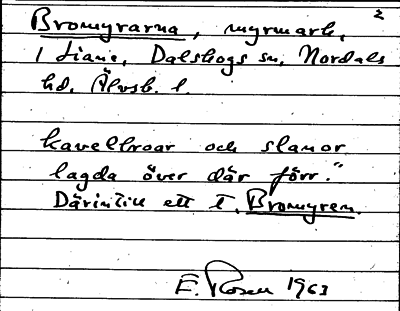 2
Bromyrarna, myrmark,
i Liane, Dalskogs sn, Nordals
hd, Älvsb. l.
kavelbroar och slanor
lagda över där förr."
Därintill ett t. Bromyren.
E. Rosen 1963